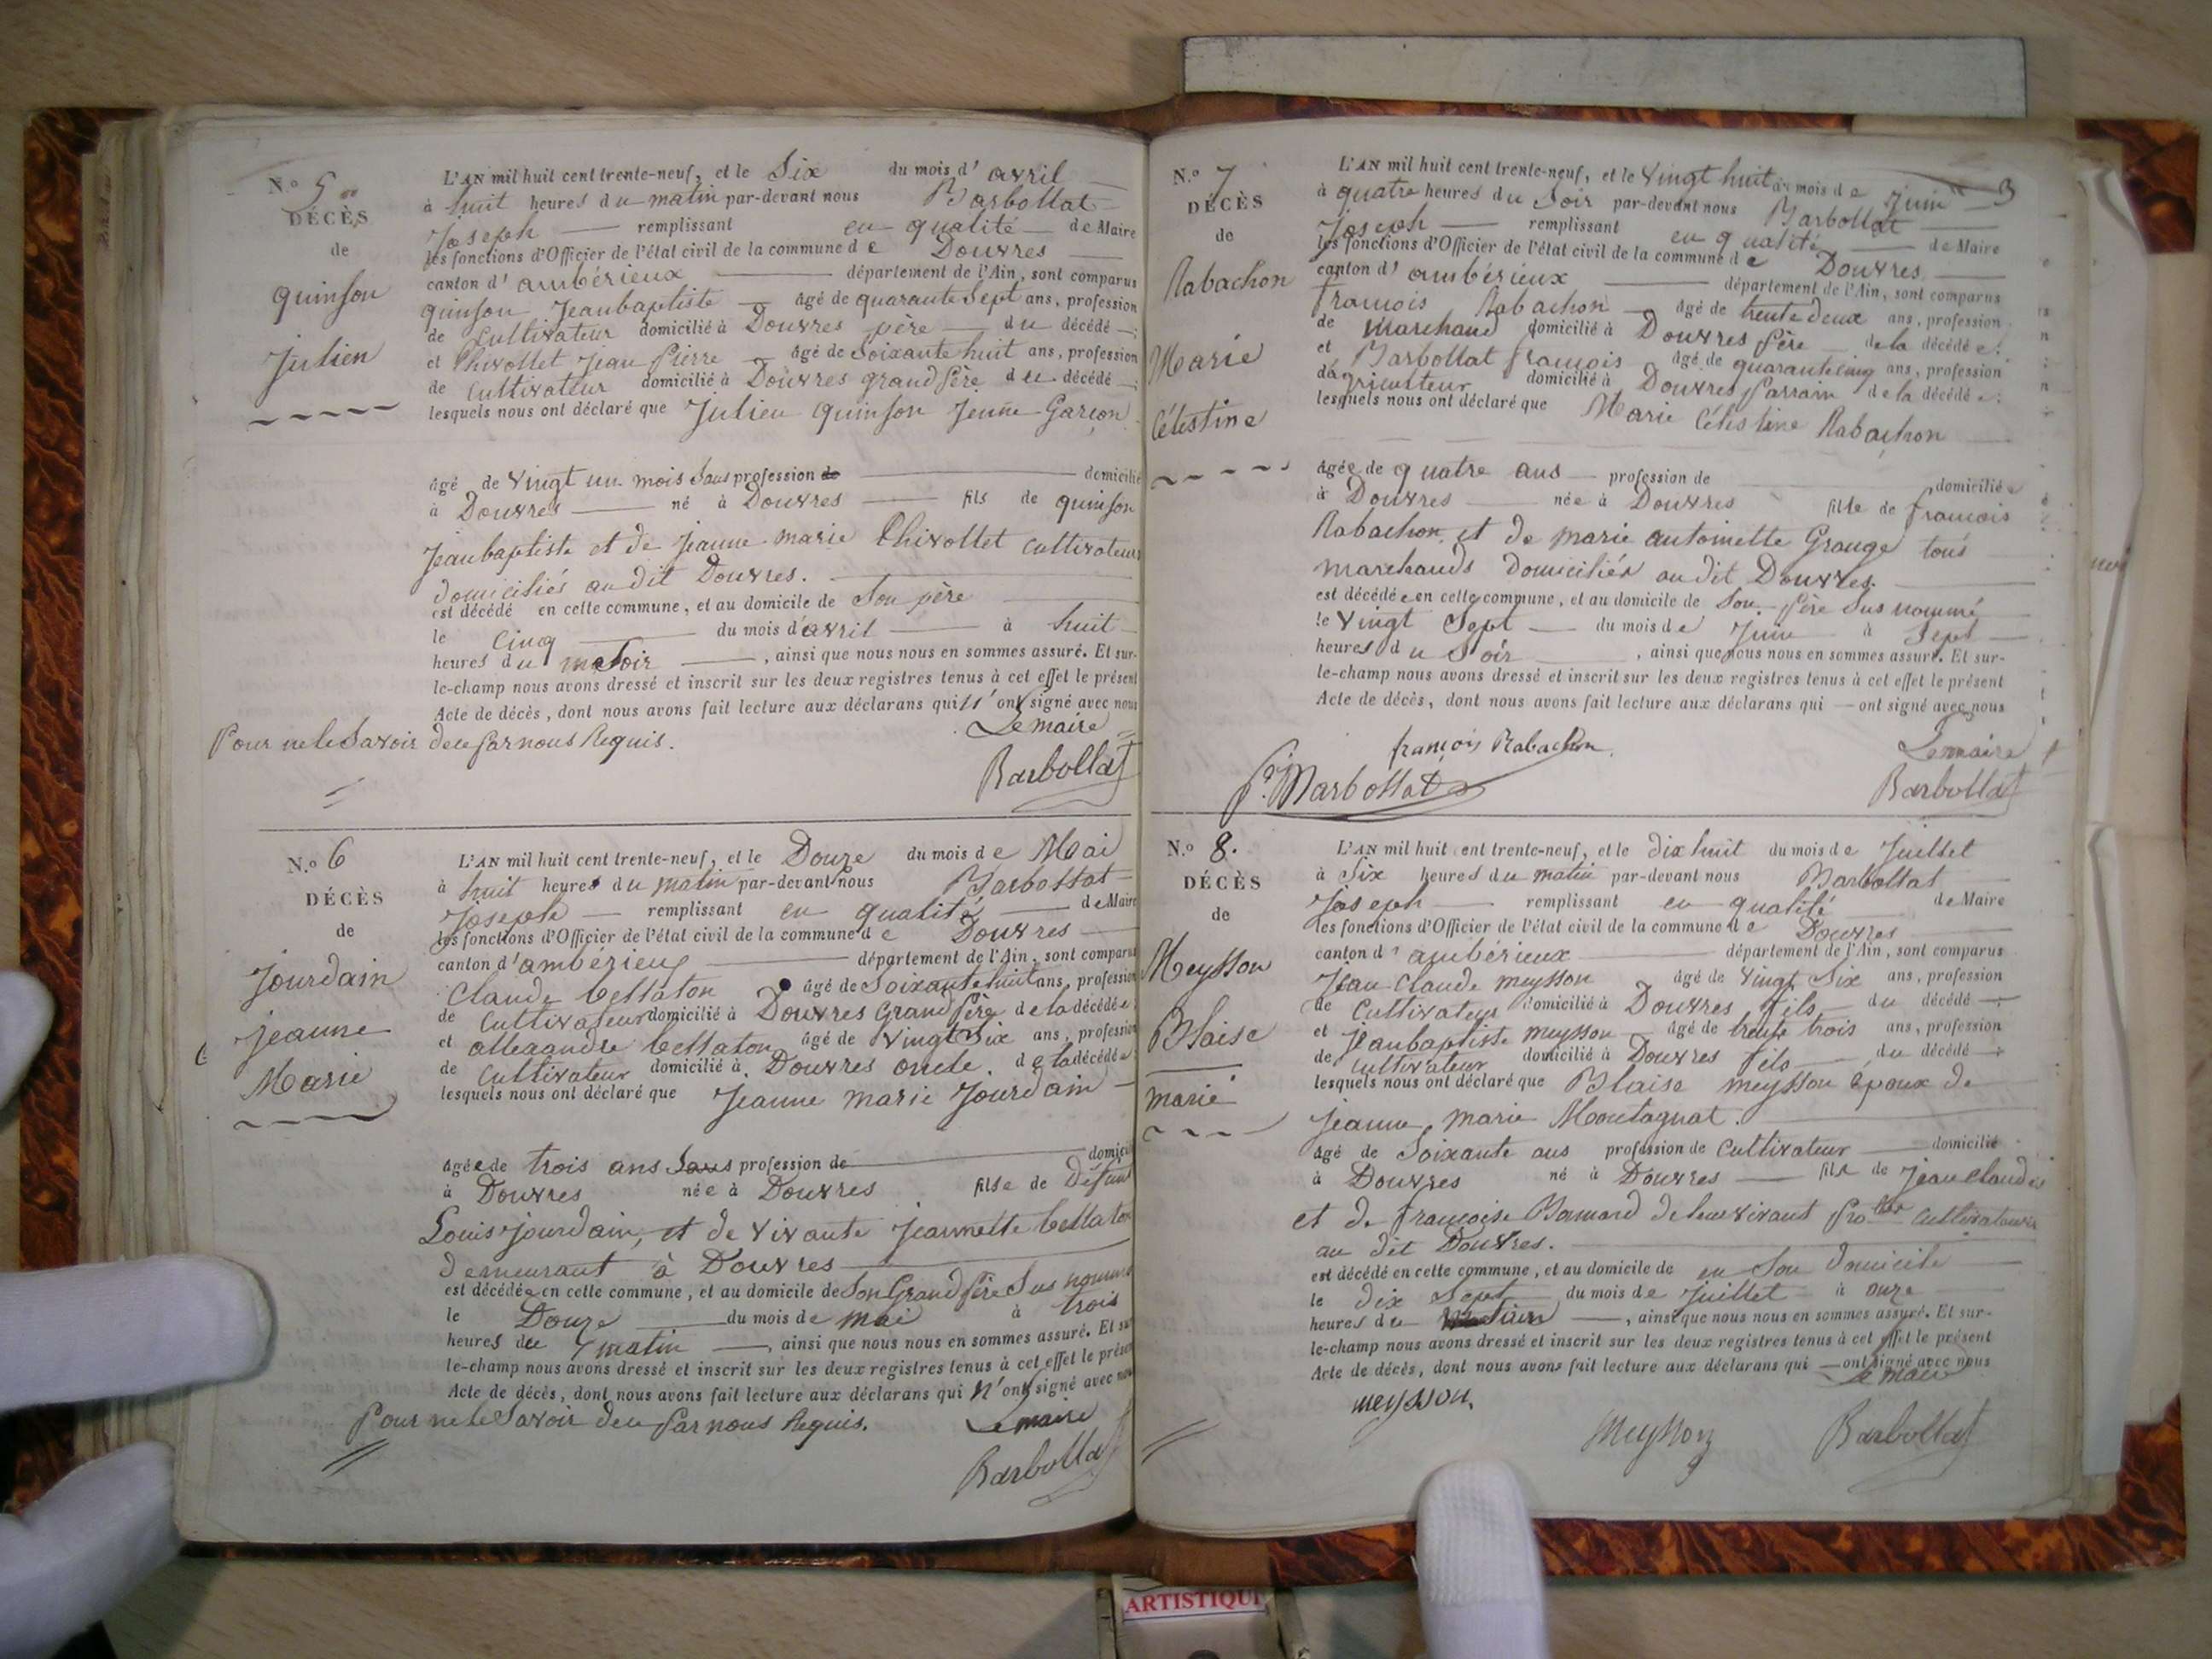 N.º 5
DÉCÈS
de
quinson
Julien
L'AN mil huit cent trente-neuf, et le Six du mois d'avril
à huit heures du matin par-devant nous Barbollat
Joseph remplissant en qualité de Maire
les fonctions d'Officier de l'état civil de la commune de Douvres
canton d'ambérieux département de l'Ain, sont comparus
quinson Jeanbaptiste âgé de quarante Sept ans, profession
de Cultivateur domicilié à Douvres père du décédé
et Chivollet Jean Pierre âgé de Soixante huit ans, profession
de Cultivateur domicilié à Douvres grand Père du décédé
lesquels nous ont déclaré que Julien quinson Jeune Garçon
âgé de vingt un mois Sans profession de domicilié
à Douvres né à Douvres fils de quinson
Jeanbaptiste et de Jeanne marie Chivollet Cultivateurs
domiciliés au dit Douvres.
est décédé en cette commune, et au domicile de Son père
le Cinq du mois d'avril à huit
heures du Soir, ainsi que nous nous en sommes assuré. Et sur-
le-champ nous avons dressé et inscrit sur les deux registres tenus à cet effet le présent
Acte de décès, dont nous avons fait lecture aux déclarans qui n'ont signé avec nous
Pour ne le Savoir de ce Par nous Requis. Le maire
Barbollat
N.º 6
DÉCÈS
de
Jourdain
jeanne
Marie
L'AN mil huit cent trente-neuf, et le Douze du mois de Mai
à huit heures du matin par-devant nous Barbollat
Joseph remplissant en qualité de Maire
les fonctions d'Officier de l'état civil de la commune de Douvres
canton d'ambérieux département de l'Ain, sont comparus
Claude bellaton âgé de Soixante huit ans, profession
de Cultivateur domicilié à Douvres Grand Père de la décédée
et allexandre bellaton âgé de Vingt Six ans, profession
de Cultivateur domicilié à Douvres oncle de la décédée
lesquels nous ont déclaré que Jeanne marie Jourdain
âgée de trois ans Sans profession de domicilié
à Douvres née à Douvres fille de Défunt
Louis Jourdain, et de vivante Jeannette bellaton
demeurant à Douvres
est décédée en cette commune, et au domicile de Son Grand Père Sus nommé
le Douze du mois de mai à trois
heures du matin, ainsi que nous nous en sommes assuré. Et sur
le-champ nous avons dressé et inscrit sur les deux registres tenus à cet effet le présent
Acte de décès, dont nous avons fait lecture aux déclarans qui N'ont signé avec nous
Pour ne le Savoir de ce Par nous Requis. Le maire
Barbollat
N.º 7
DÉCÈS
de
Rabachon
Marie
Célestine
L'AN mil huit cent trente-neuf, et le Vingt huit du mois de Juin 3
à quatre heures du Soir par-devant nous Barbollat
Joseph remplissant en qualité de Maire
les fonctions d'Officier de l'état civil de la commune de Douvres
canton d'ambérieux département de l'Ain, sont comparus
françois Rabachon âgé de trente deux ans, profession
de Marchand domicilié à Douvres Père de la décédée
et Barbollat françois âgé de quarante cinq ans, profession
d'agriculteur domicilié à Douvres Parrain de la décédée
lesquels nous ont déclaré que Marie Célestine Rabachon
âgée de quatre ans profession de domiciliée
à Douvres née à Douvres fille de françois
Rabachon et de marie antoinette Grange tous
marchands Domiciliés au dit Douvres.
est décédée en cette commune, et au domicile de Son Père Sus nommé
le Vingt Sept du mois de Juin à Sept
heures du Soir, ainsi que nous nous en sommes assuré. Et sur-
le-champ nous avons dressé et inscrit sur les deux registres tenus à cet effet le présent
Acte de décès, dont nous avons fait lecture aux déclarans qui ont signé avec nous
françois Rabachon Le maire
Barbollat Barbollat
N.º 8.
DÉCÈS
de
Meysson
Blaise
marié
L'AN mil huit cent trente-neuf, et le dix huit du mois de Juillet
à Six heures du matin par-devant nous Barbollat
Joseph remplissant en qualité de Maire
les fonctions d'Officier de l'état civil de la commune de Douvres
canton d'ambérieux département de l'Ain, sont comparus
Jean Claude meysson âgé de Vingt Six ans, profession
de Cultivateur domicilié à Douvres fils du décédé
et Jeanbaptiste meysson âgé de trente trois ans, profession
de Cultivateur domicilié à Douvres fils du décédé
lesquels nous ont déclaré que Blaise meysson époux de
jeanne marie Montagnat.
âgé de Soixante ans profession de Cultivateur domicilié
à Douvres né à Douvres fils de Jean Claude
et de françoise de leur vivant Cultivateurs
au dit Douvres.
est décédé en cette commune, et au domicile de en Son Domicile
le dix Sept du mois de Juillet à onze
heures du, ainsi que nous nous en sommes assuré. Et sur-
le-champ nous avons dressé et inscrit sur les deux registres tenus à cet effet le présent
Acte de décès, dont nous avons fait lecture aux déclarans qui ont signé avec nous
Le maire
meysson
Meysson Barbollat
ARTISTIQUE